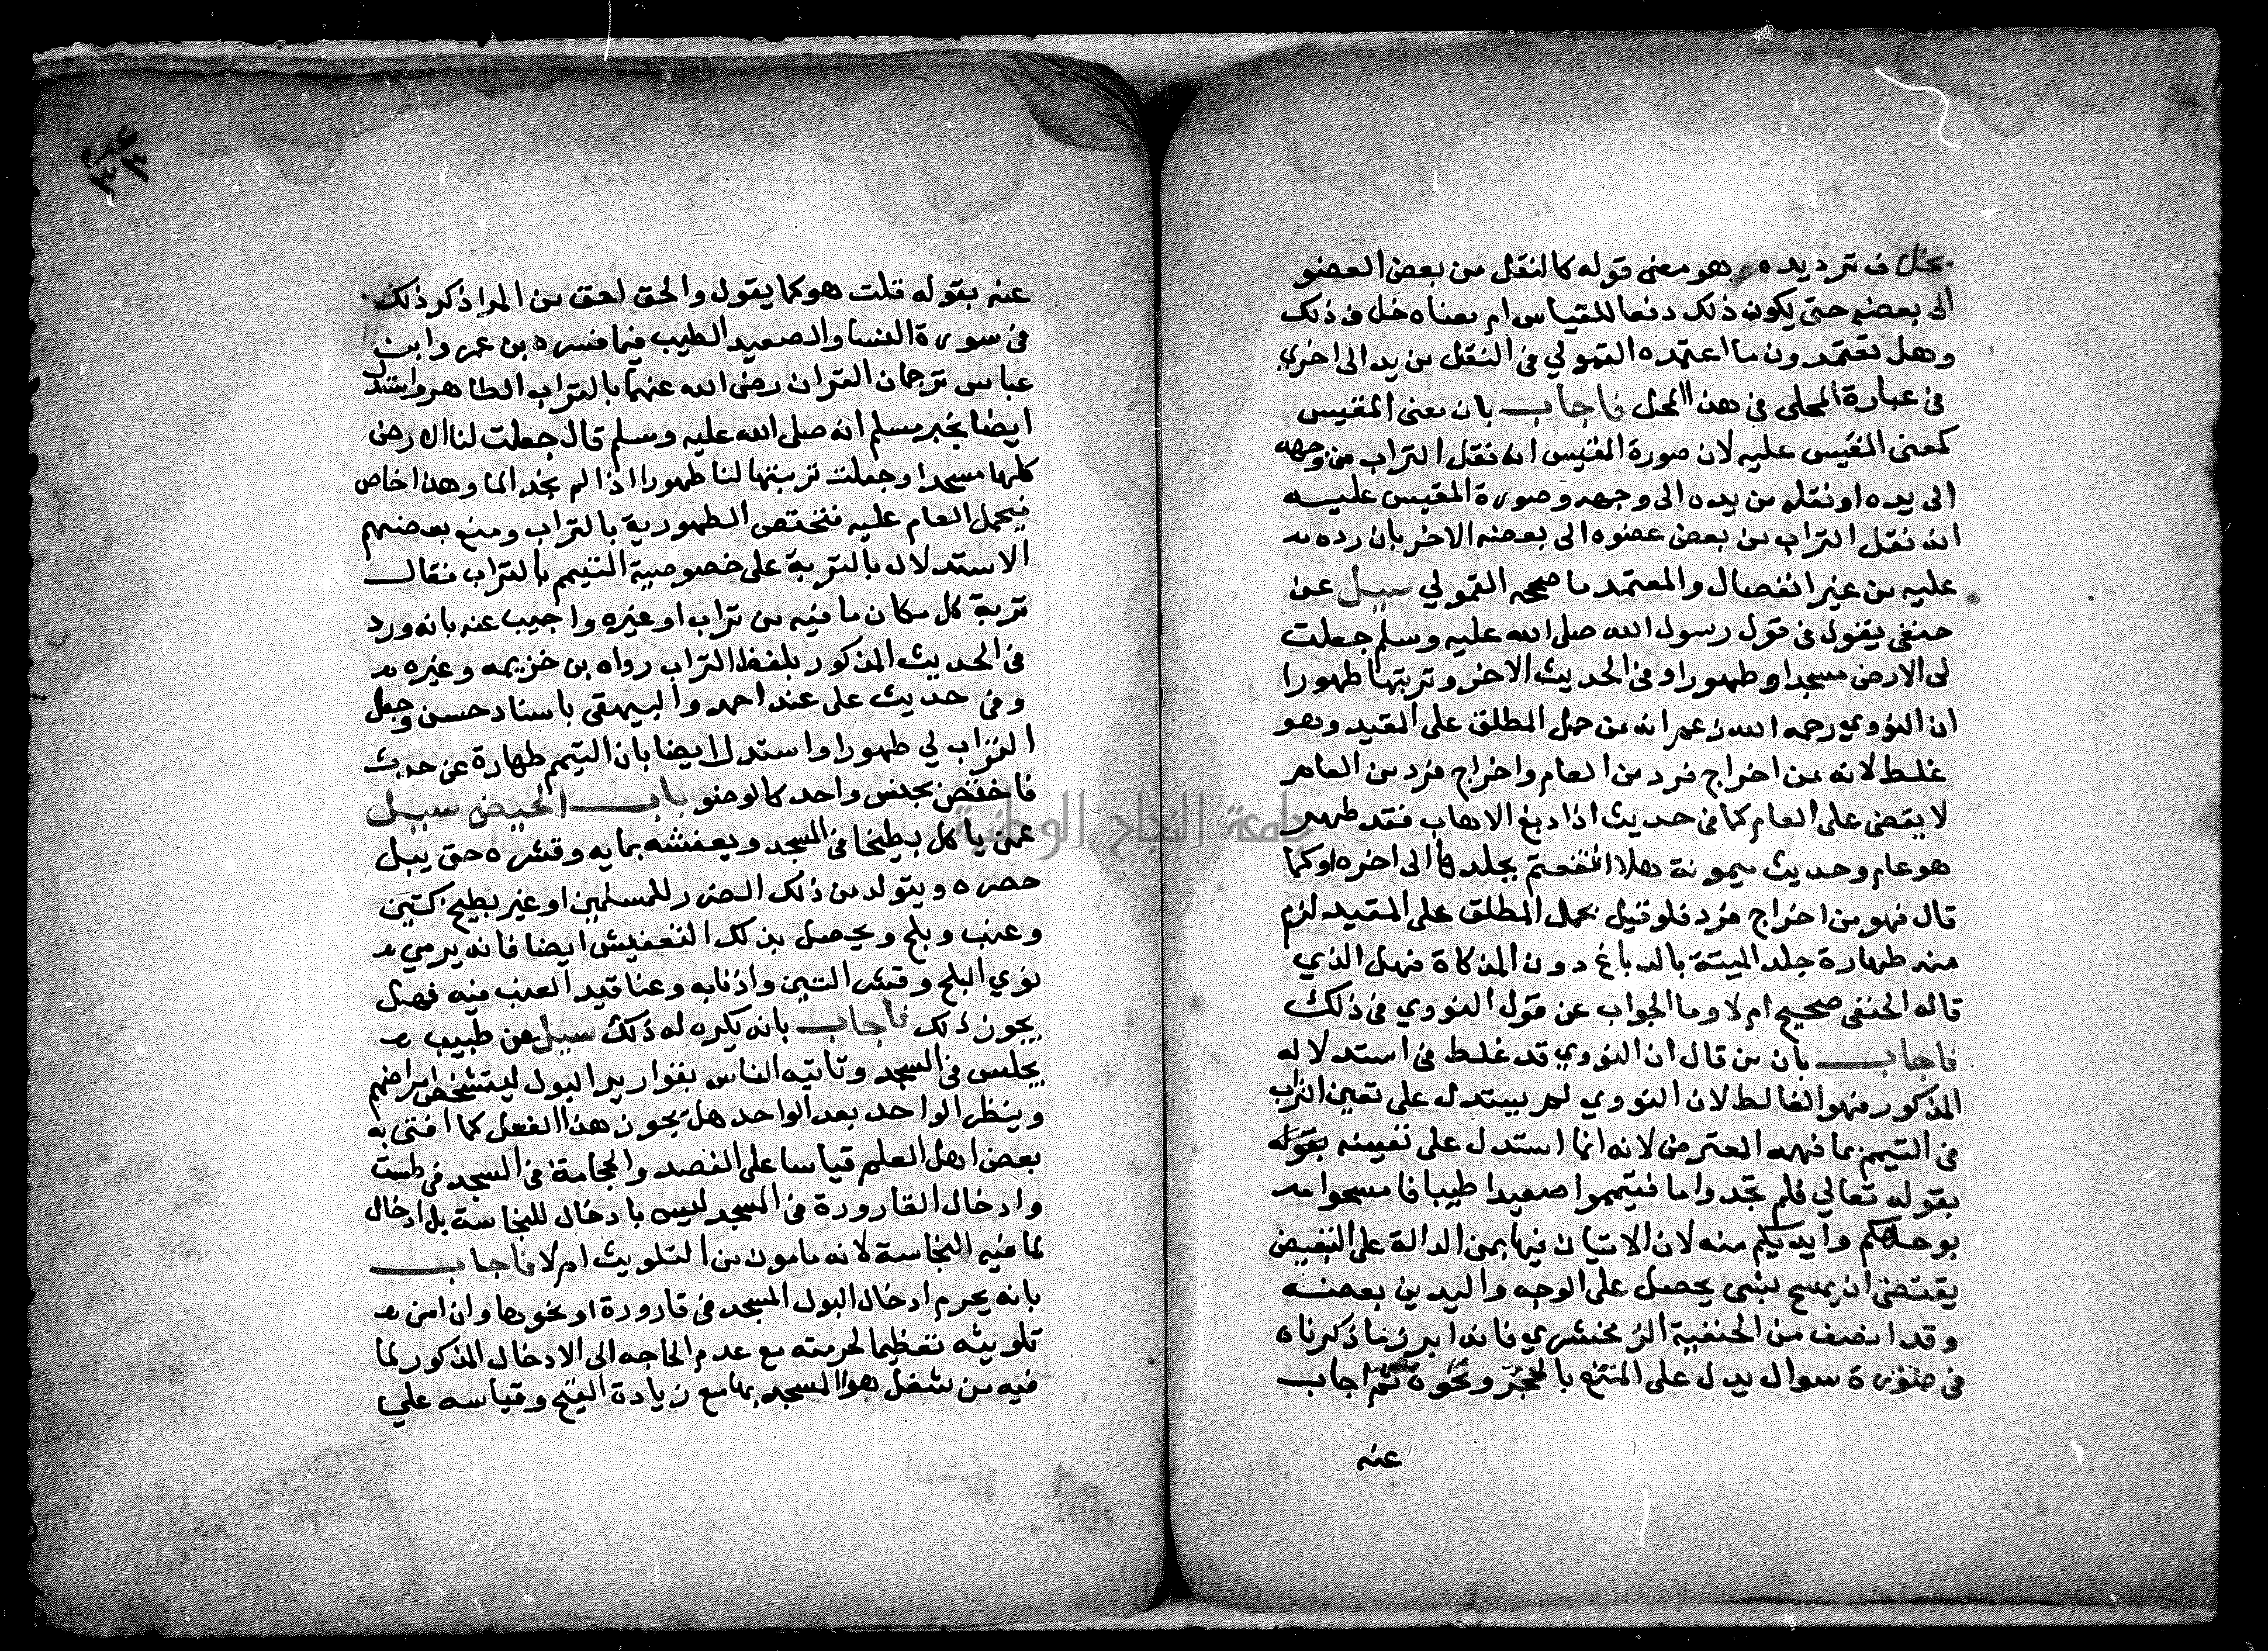 بخلاف ترديده وهو معنى قوله كالنقل من بعض العضو
الى بعضه حتى يكون ذلك دفعا للقياس ام معناه خلاف ذلك
وهل تعتمدون ما اعتمده القمولي في النقل من يد الى اخرى
في عبارة المحلى في هذا المحل فاجاب بان معنى المقيس
كمعنى المقيس عليه لان صورة المقيس ان نقل التراب من وجهه
الى يده او نقله من يده الى وجهه وصورة المقيس عليه
انه نقل التراب من بعض عضوه الى بعضه الاخر بان رده
عليه من غير انفصال والمعتمد ما صححه القمولي سيل عن
حنفي يقول في قول رسول الله صلى الله عليه وسلم جعلت
لى الارض مسجدا وطهورا وفي الحديث الاخر وتربتها طهورا
ان النووي رحمه الله زعم انه من حمل المطلق على المقيد وهو
غلط لانه من اخراج فرد من العام واخراج فرد من العام
لا يقضى على العام كما في حديث اذا دبغ الاهاب فقد طهر
هو عام وحديث ميمونة هلا انتفعتم بجلدها الى اخره او كما
قال فهو من اخراج فرد فلو قيل بحمل المطلق على المقيد لزم
منه طهارة جلد الميتة بالدباغ دون المذكاة فهل الذي
قاله الحنفي صحيح ام لا وما الجواب عن قول النووي في ذلك
فاجاب بان من قال ان النووي قد غلط في استدلاله
المذكور فهو الغالط لان النووي لم يستدل على تعين التراب
في التيمم بما فهمه المعترض لانه انما استدل على تعيينه بقوله
بقوله تعالي فلم تجدوا ما فتيمموا صعيدا طيبا فامسحوا
بوجوهكم وايديكم منه لان الاتيان فيها بمن الدالة على التبعيض
يقتضى ان يمسح بشى يحصل على الوجه واليدين بعضه
وقد انصف من الحنفية الزمخشري فانه ابرز ما ذكرناه
في صورة سوال يدل على المنع بالحجر ونحوه ثم اجاب
عنه
عنه بقوله قلت هو كما يقول والحق احق من المرا ذكر ذلك
في سورة النسا والصعيد الطيب فيما فسره بن عمر وابن
عباس ترجمان القران رضى الله عنهما بالتراب الطاهر واستدل
ايضا بخبر مسلم انه صلى الله عليه وسلم قال جعلت لنا الارض
كلها مسجدا وجعلت تربتها لنا طهورا اذا لم نجد الما وهذا خاص
فيحمل العام عليه فتختص الطهورية بالتراب ومنع بعضهم
الاستدلال بالتربة على خصوصية التيمم بالتراب فقال
تربة كل مكان ما فيه من تراب او غيره واجيب عنه بانه ورد
في الحديث المذكور بلفظ التراب رواه بن خزيمه وغيره
وفي حديث على عند احمد والبيهقى باسناد حسن وجعل
التراب لي طهورا واستدل ايضا بان التيمم طهارة عن حدث
فاختص بجنس واحد كالوضو باب الحيض سيل
عمن ياكل بطيخا في المسجد ويعفشه بمايه وقشره حتى يبل
حصره ويتولد من ذلك الضرر للمسلمين او غير بطيخ كتين
وعنب وبلح ويحصل بذلك التعفيش ايضا فانه يرمي
نوي البلح وقشر التين واذنابه وعناقيد العنب فيه فهل
يجوز ذلك فاجاب بانه يكره له ذلك سيل عن طبيب
يجلس في المسجد وتاتيه الناس بقوارير البول ليتشخص امراضهم
وينظر الواحد بعد الواحد هل يجوز هذا الفعل كما افتى به
بعض اهل العلم قياسا على الفصد والحجامة في المسجد في طست
وادخال القارورة في المسجد ليس بادخال للنجاسة بل ادخال
لما فيه النجاسة لانه مامون من التلويث ام لا فاجاب
بانه يحرم ادخال البول المسجد في قارورة او نحوها وان امن
تلويثه تعظيما لحرمته مع عدم الحاجه الى الادخال المذكور لما
فيه من شغل هوا المسجد بها مع زيادة القبح وقياسه علي
جامعة النجاح الوطنية